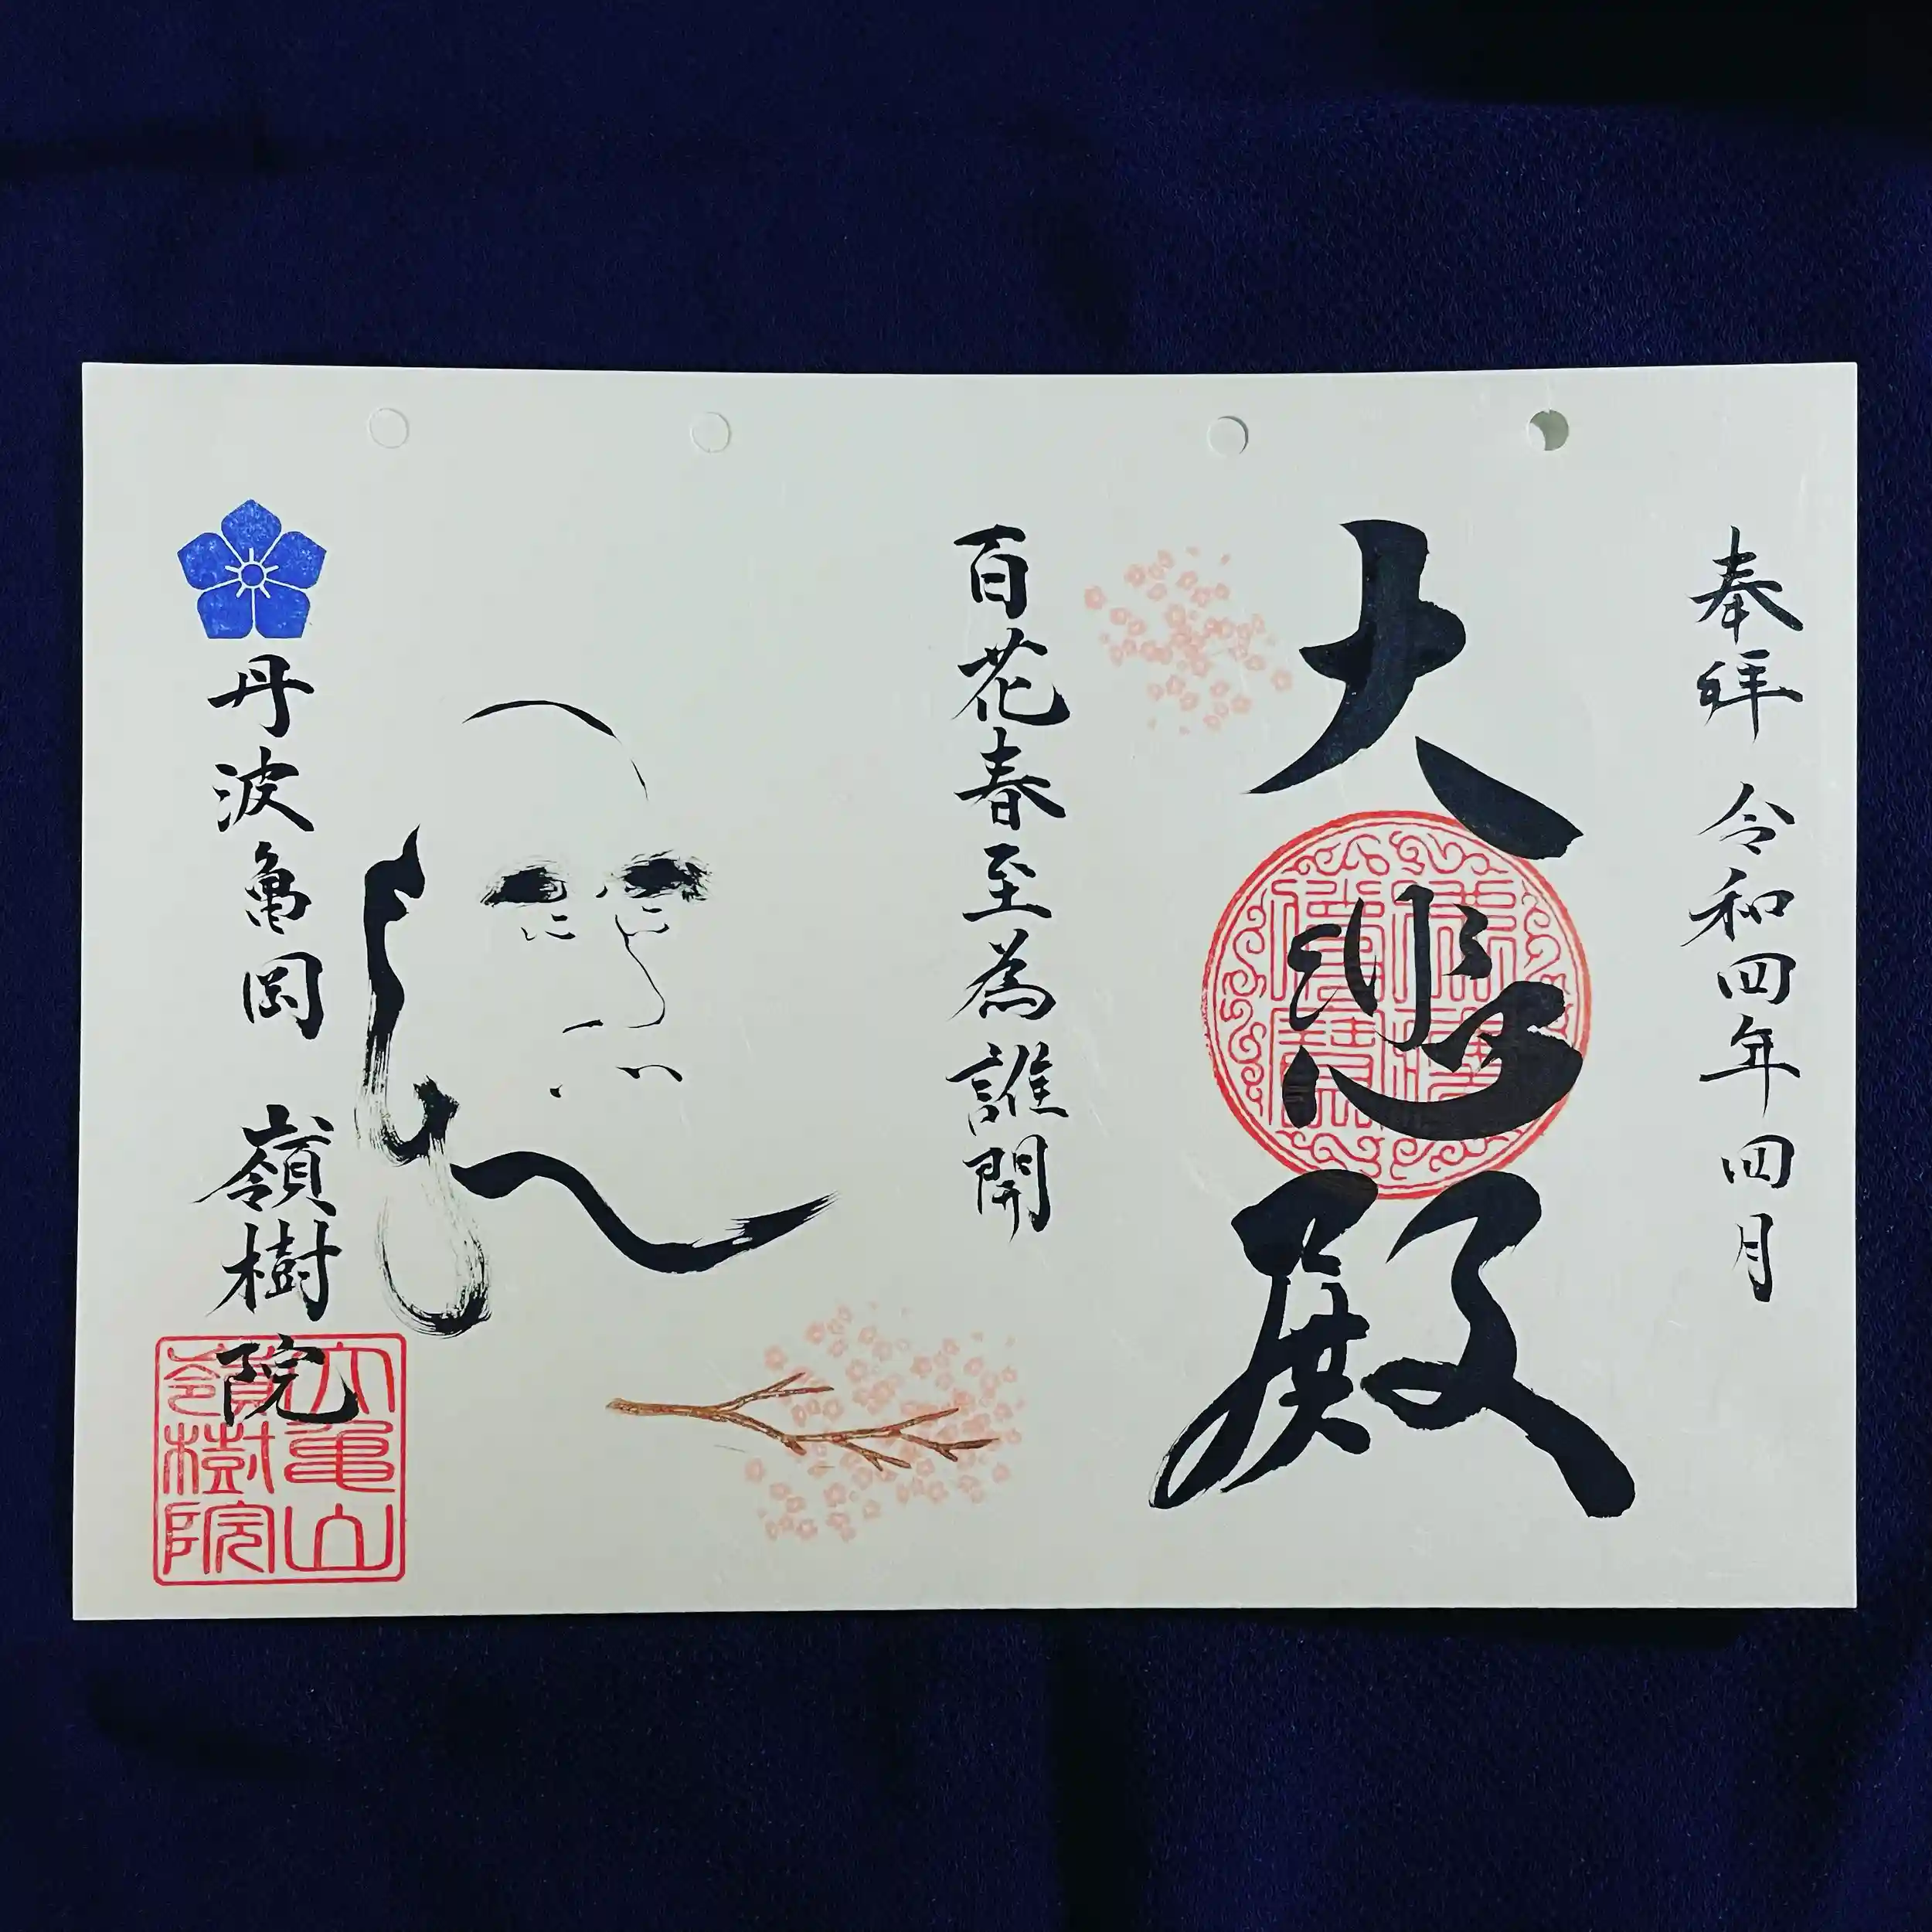 奉拜 令和四年四月
大悲殿
百花春至為誰開
丹波亀岡 嶺樹院
大亀山
嶺樹院